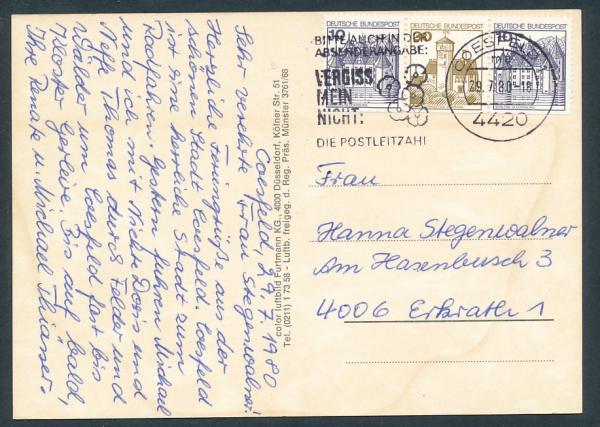 Coesfeld, 29.7.1980
Sehr verehrte Frau Stegenwalner!
Herzliche Feriengrüße aus der
schönen Stadt Coesfeld. Coesfeld
ist eine herrliche Stadt zum
Radfahren. Gestern fuhren Michael
und ich mit Nichte Doris und
Neffe Thomas durch Felder und
Wälder um Coesfeld fast bis
Kloster Gerleve. Bis auf bald,
Ihre Renate u. Michael
color luftbild Furtmann KG., 4000 Düsseldorf, Kölner Str. 51
Tel. (0211) 1 73 58 - Luftb. freigeg. d. Reg. Präs. Münster 3761/68
DEUTSCHE BUNDESPOST
DEUTSCHE BUNDESPOST
DEUTSCHE BUNDESPOST
BITTE AUCH IN DER
ABSENDERANGABE:
VERGISS
MEIN
NICHT:
DIE POSTLEITZAHL
COESFELD
29.7.80-18
4420
Frau
Hanna Stegenwalner
Am Hasenbusch 3
4006 Erkrath 1